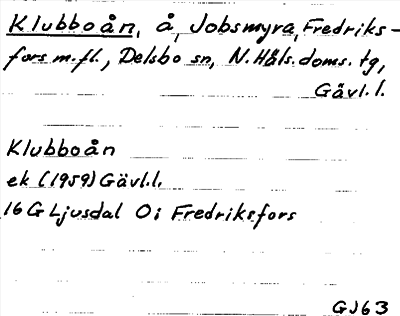 Klubboån, å, Jobsmyra, Fredriks-
fors m.fl., Delsbo sn, N. Häls. doms. tg,
Gävl. l.
Klubboån
ek (1959) Gävl. l.
16 G Ljusdal 0i Fredriksfors
GJ63